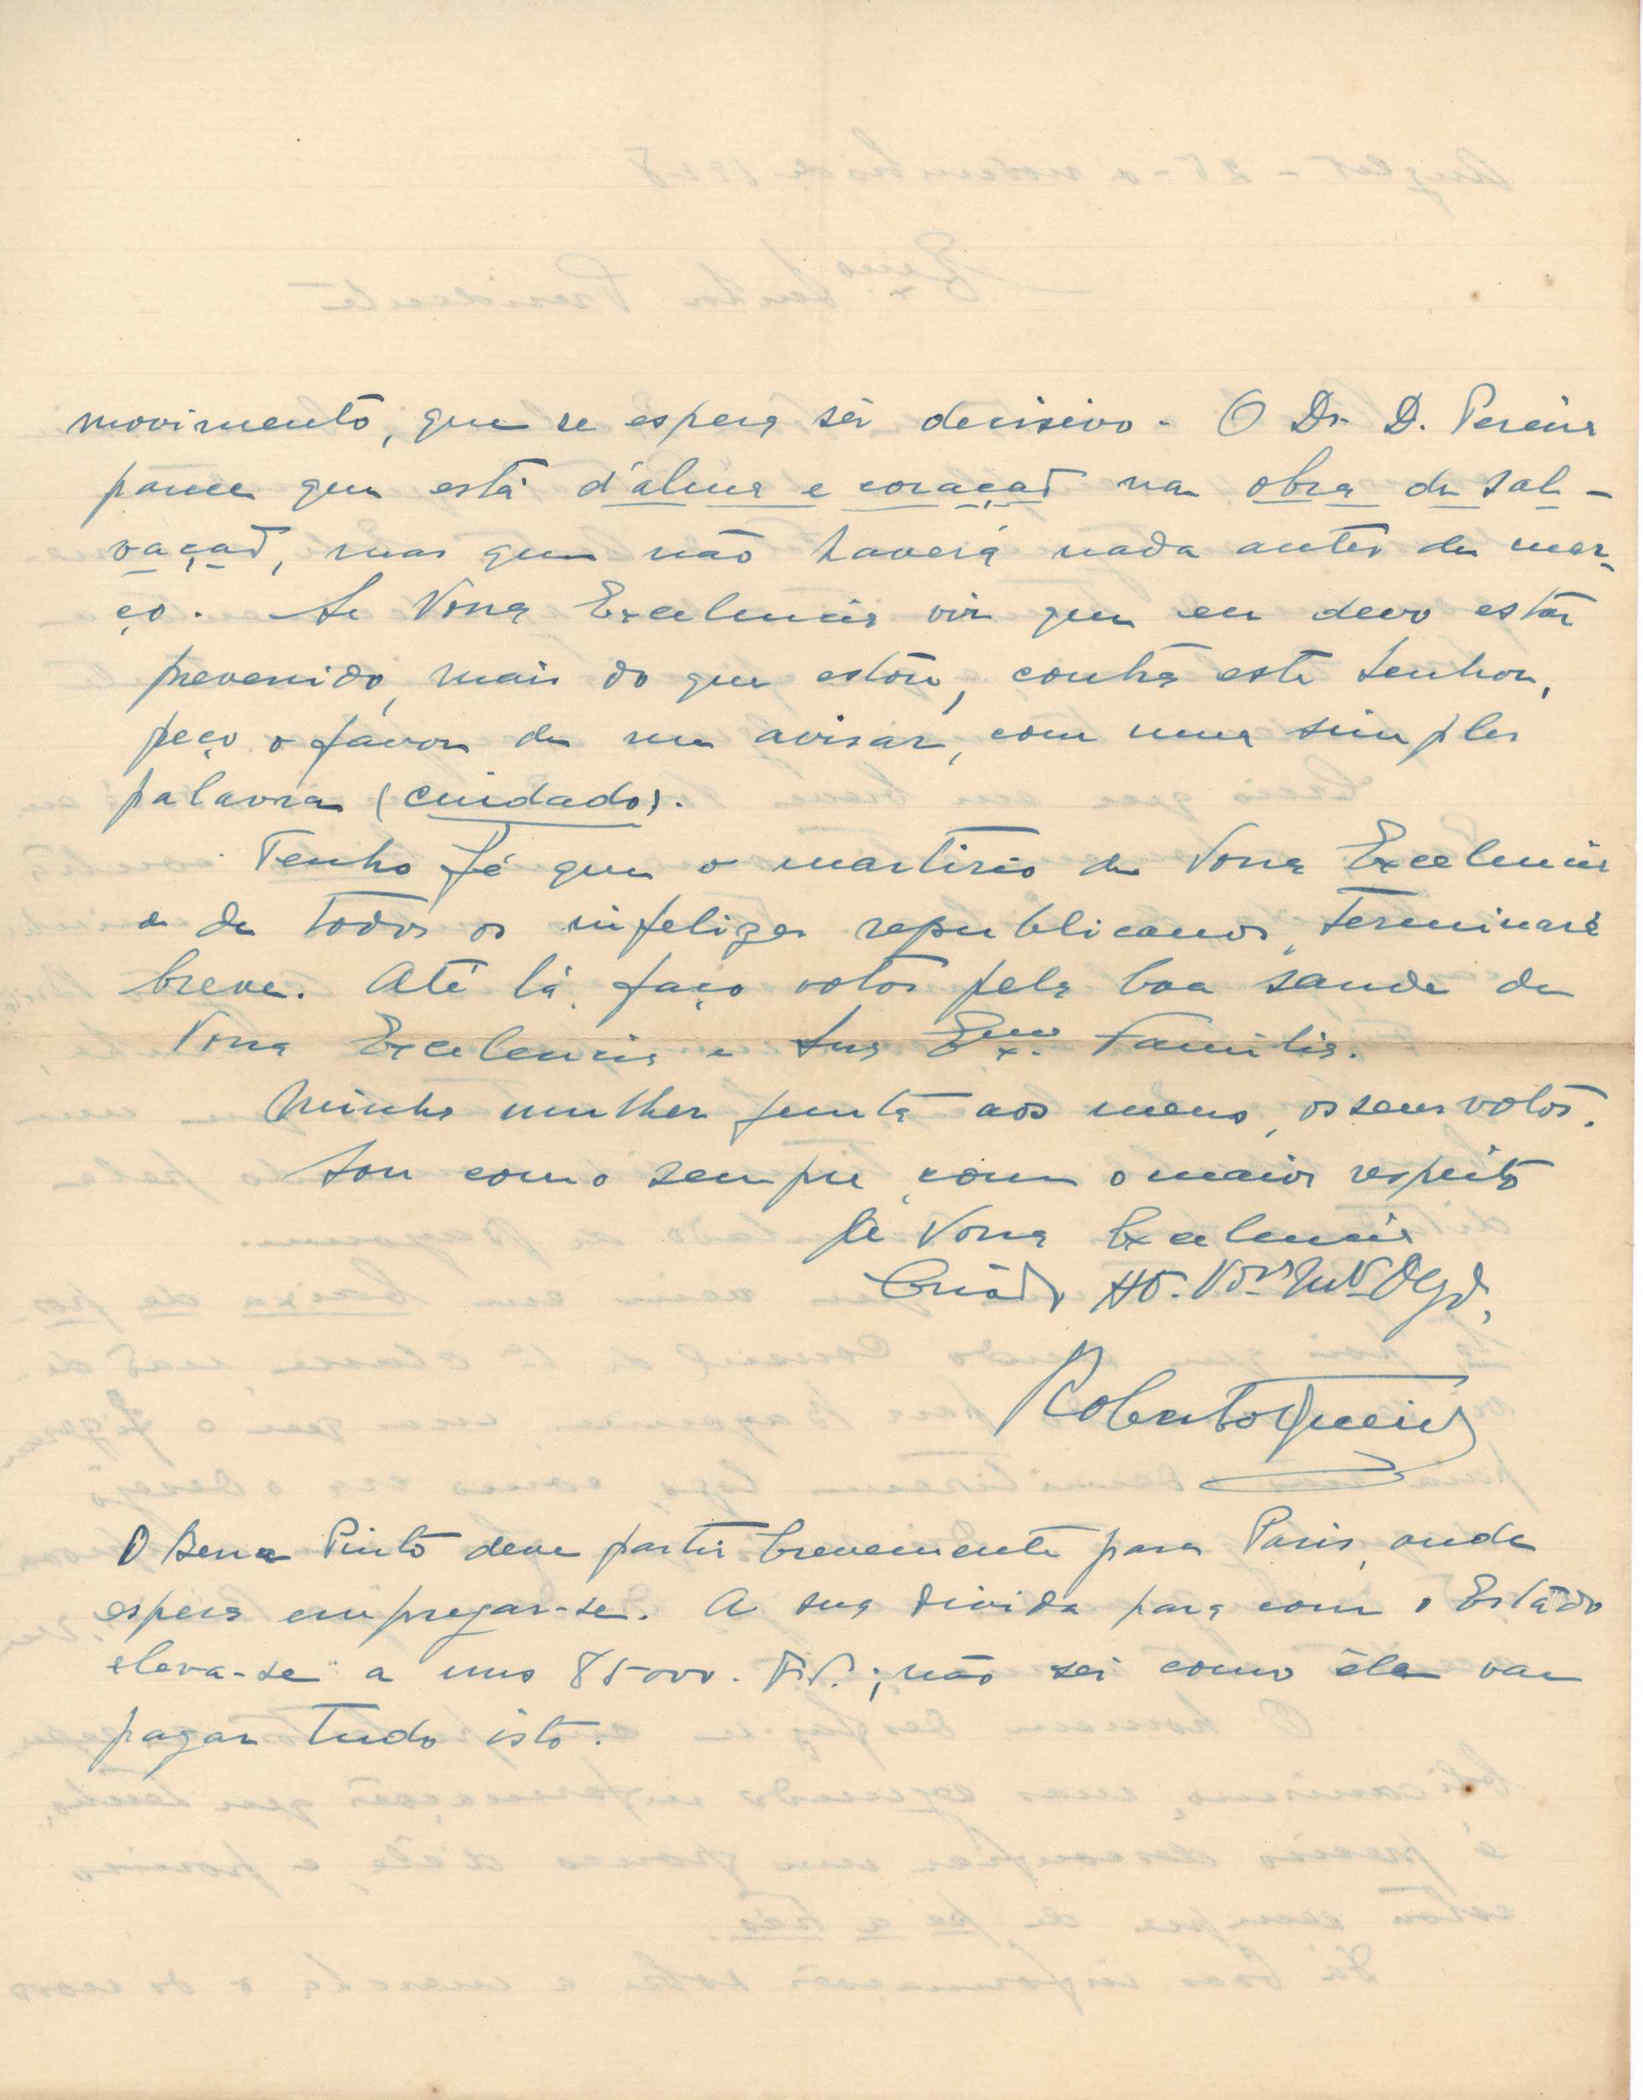 movimento, que se espera ser decisivo. O Dr. D. Pereira
parece que está d'alma e coração na obra de sal-
vação, mas que não haverá nada antes de mar-
ço. Se Vossa Excelencia vir que eu devo estar
prevenido, mais do que estou, contra este senhor,
peço o favor de me avisar, com uma simples
palavra (cuidado).
Tenho fé que o martirio de Vossa Excelencia
e de todos os infelizes republicanos, terminará
breve. Até lá, faço votos pela boa saude de
Vossa Excelencia e Sua Exma. Familia.
Minha mulher junta aos meus, os seus votos.
Sou como sempre, com o maior respeito
de Vossa Excelencia
Criado Atº. Vor. Mtº Obgdº.
Roberto
O Sena Pinto deve partir brevemente para Paris, onde
espera empregar-se. A sua divida para com o Estado
eleva-se a uns 85000. ; não sei como êle vae
pagar tudo isto.